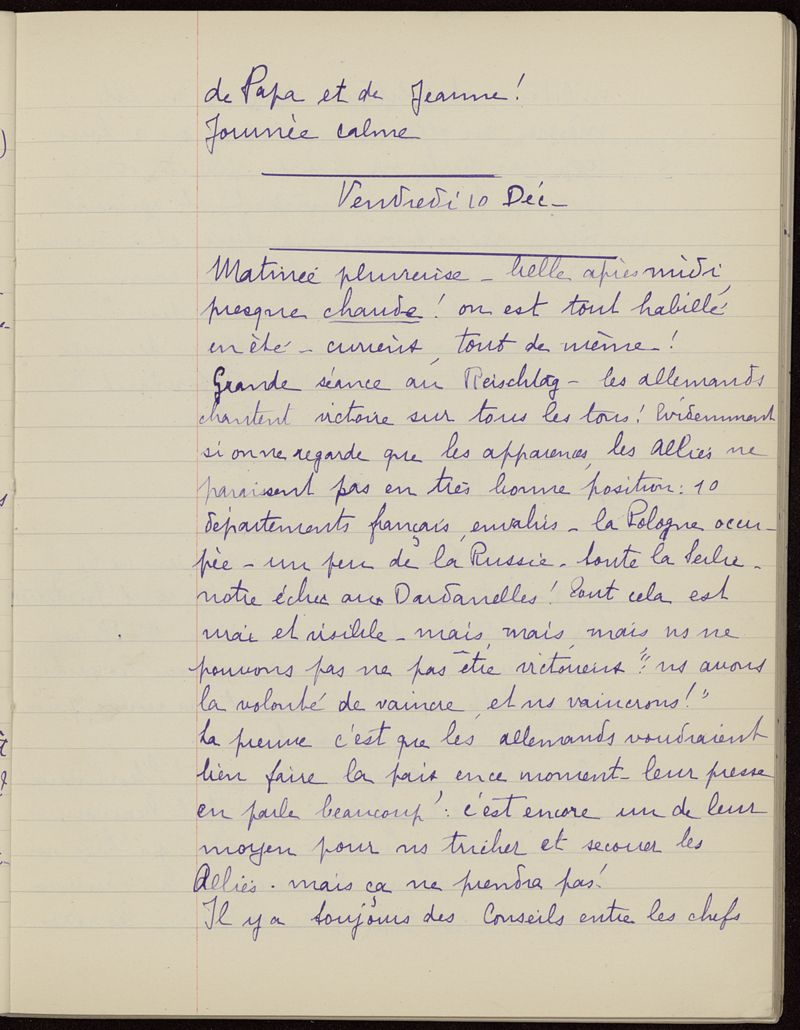 de Papa et de Jeanne!
Journée calme
Vendredi 10 Déc-
Matineé pluvieuse - belle après midi,
presque chaude! on est tout habillé
en été - curieux, tout de même-!
Grande séance au Reischtag - les allemands
chantent victoire sur tous les tons! Evidemment
si on ne regarde que les apparences, les Alliés ne
paraissent pas en très bonne position: 10
départements français, envahis - la Pologne occu-
pée - un peu de la Russie - toute la Serbie -
notre échec aux Dardanelles! Tout cela est
vrai et visible - mais, mais, mais ns ne
pouvons pas ne pas être victorieux: "ns avons
la volonté de vaincre, et ns vaincrons!"
La preuve c'est que les allemands voudraient
bien faire la paix en ce moment - leur presse
en parle beaucoup!: c'est encore un de leur
moyen pour ns tricher et secouer les
Alliés. mais ça ne prendra pas!
Il y a toujours des Conseils entre les chefs